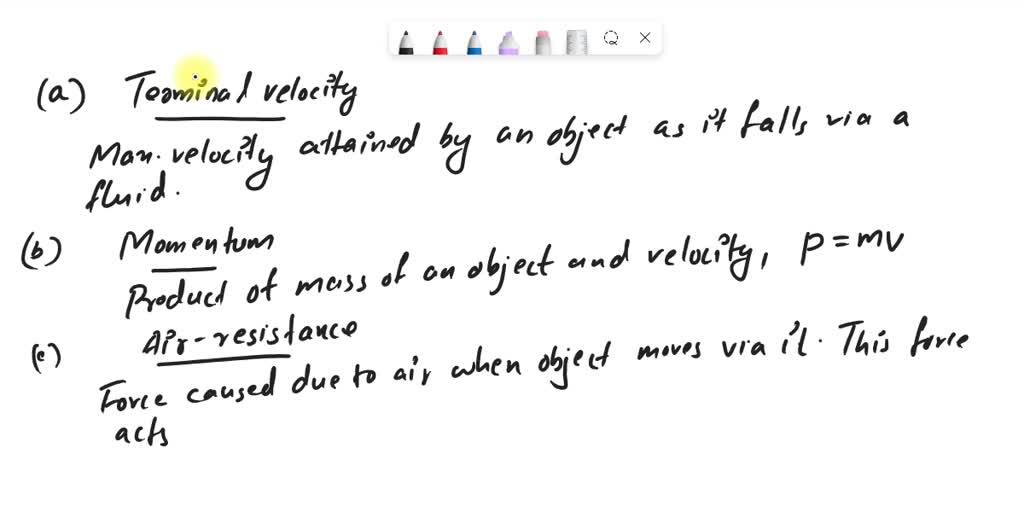 (a) Terminal velocity
Max. velocity attained by an object as it falls via a
fluid.
(b) Momentum
Product of mass of an object and velocity, p = mv
(c) Air-resistance
Force caused due to air when object moves via it. This force
acts